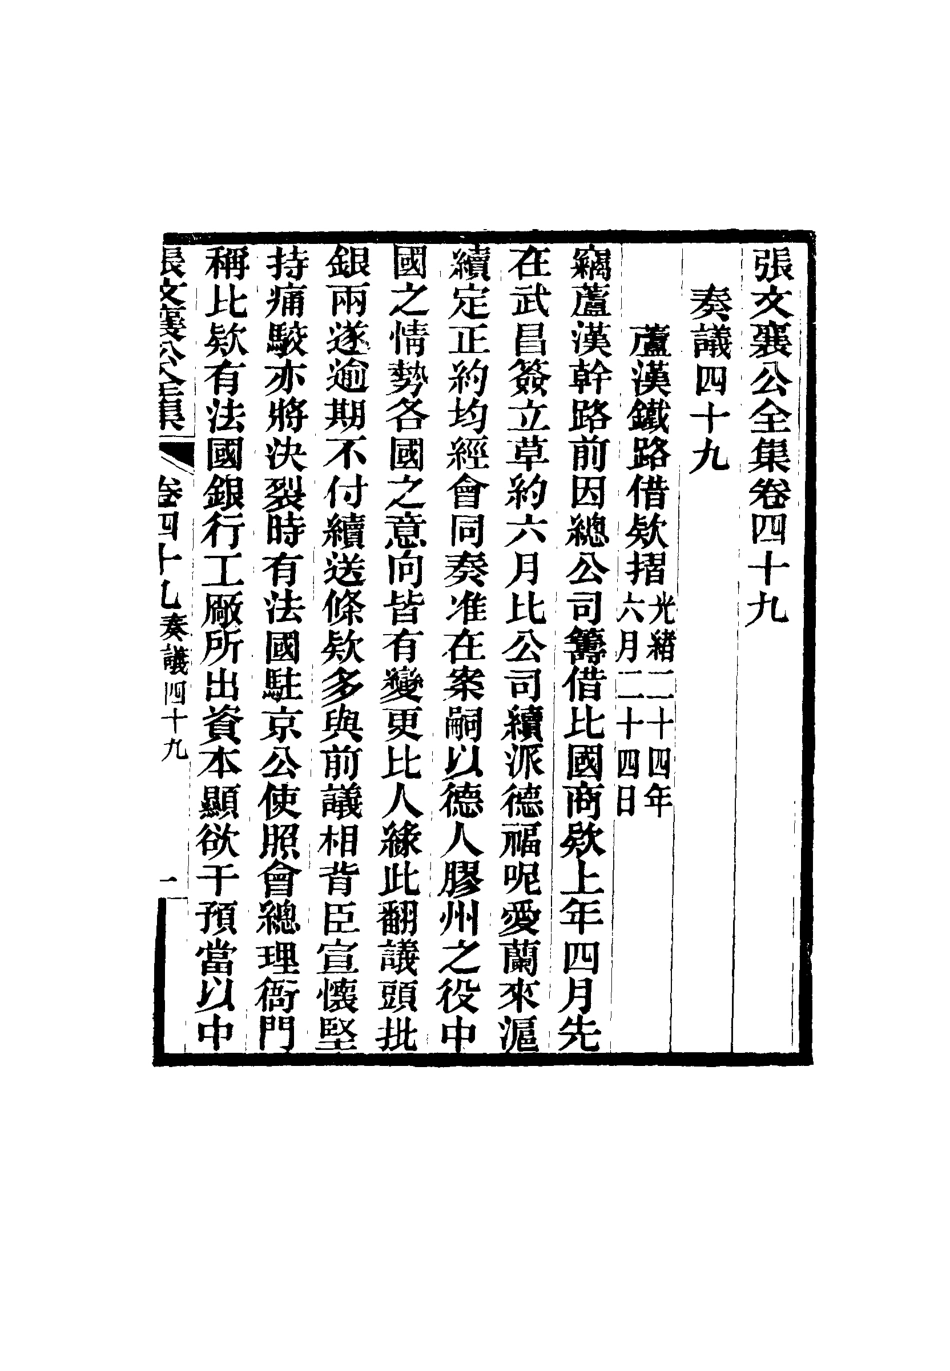 張文襄公全集卷四十九
奏議四十九
蘆漢鐵路借欵摺光緒二十四年六月二十四日
竊蘆漢幹路前因總公司籌借比國商欵上年四月先
在武昌簽立草約六月比公司續派德福呢愛蘭來滬
續定正約均經會同奏准在案嗣以德人膠州之役中
國之情勢各國之意向皆有變更比人緣此翻議頭批
銀兩遂逾期不付續送條欵多與前議相背臣宣懷堅
持痛駮亦將決裂時有法國駐京公使照會總理衙門
稱比欵有法國銀行工廠所出資本顯欲干預當以中
張文襄公全集 卷四十九 奏議四十九 一